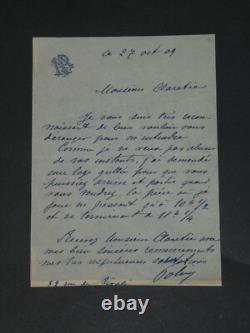 ce 27 oct 09
Monsieur Claretie
Je vous suis très recon
naissant de bien vouloir vous
déranger pour m'entendre
Comme je ne veux pas abuser
de vos instants, j'ai demandé
une loge grillée pour que vous
puissiez arriver et partir quand
vous voudrez, la pièce que je
joue ne passant qu'à 10h 1/2
et se terminant à 11h 1/4
Recevez Monsieur Claretie avec
mes bien sincères remerciements
mes très respectueuses
rue de Rivoli
thepaperframer.com